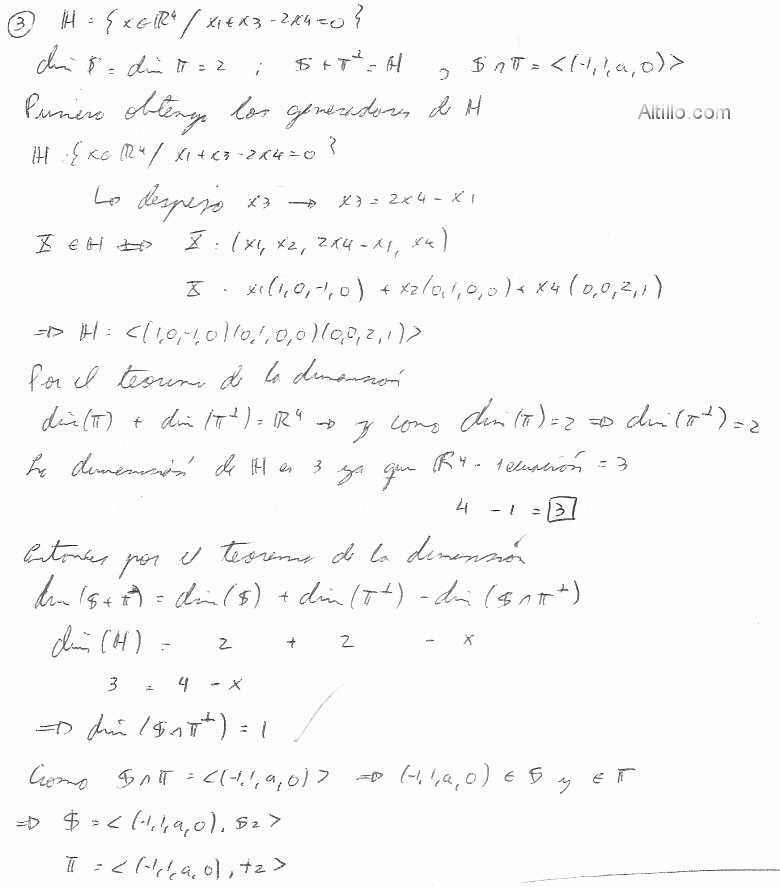 ③ H = { x ∈ R⁴ / x1 + x3 - 2x4 = 0 }
dim S = dim T = 2 ; S + T⊥ = H , S ∩ T = <(-1,1,a,0)>
Primero obtengo los generadores de H
Altillo.com
H : { x ∈ R⁴ / x1 + x3 - 2x4 = 0 }
Lo despejo x3 → x3 = 2x4 - x1
X ∈ H ⇔ X = (x1, x2, 2x4 - x1, x4)
X = x1(1,0,-1,0) + x2(0,1,0,0) + x4(0,0,2,1)
⇒ H = <(1,0,-1,0)(0,1,0,0)(0,0,2,1)>
Por el teorema de la dimensión
dim(T) + dim(T⊥) = R⁴ → y como dim(T) = 2 ⇒ dim(T⊥) = 2
La dimensión de H es 3 ya que R⁴ - 1 ecuación = 3
4 - 1 = 3
Entonces por el teorema de la dimensión
dim(S + T⊥) = dim(S) + dim(T⊥) - dim(S ∩ T⊥)
dim(H) = 2 + 2 - x
3 = 4 - x
⇒ dim(S ∩ T⊥) = 1
Como S ∩ T = <(-1,1,a,0)> ⇒ (-1,1,a,0) ∈ S y ∈ T
⇒ S = <(-1,1,a,0), s2>
T = <(-1,1,a,0), t2>